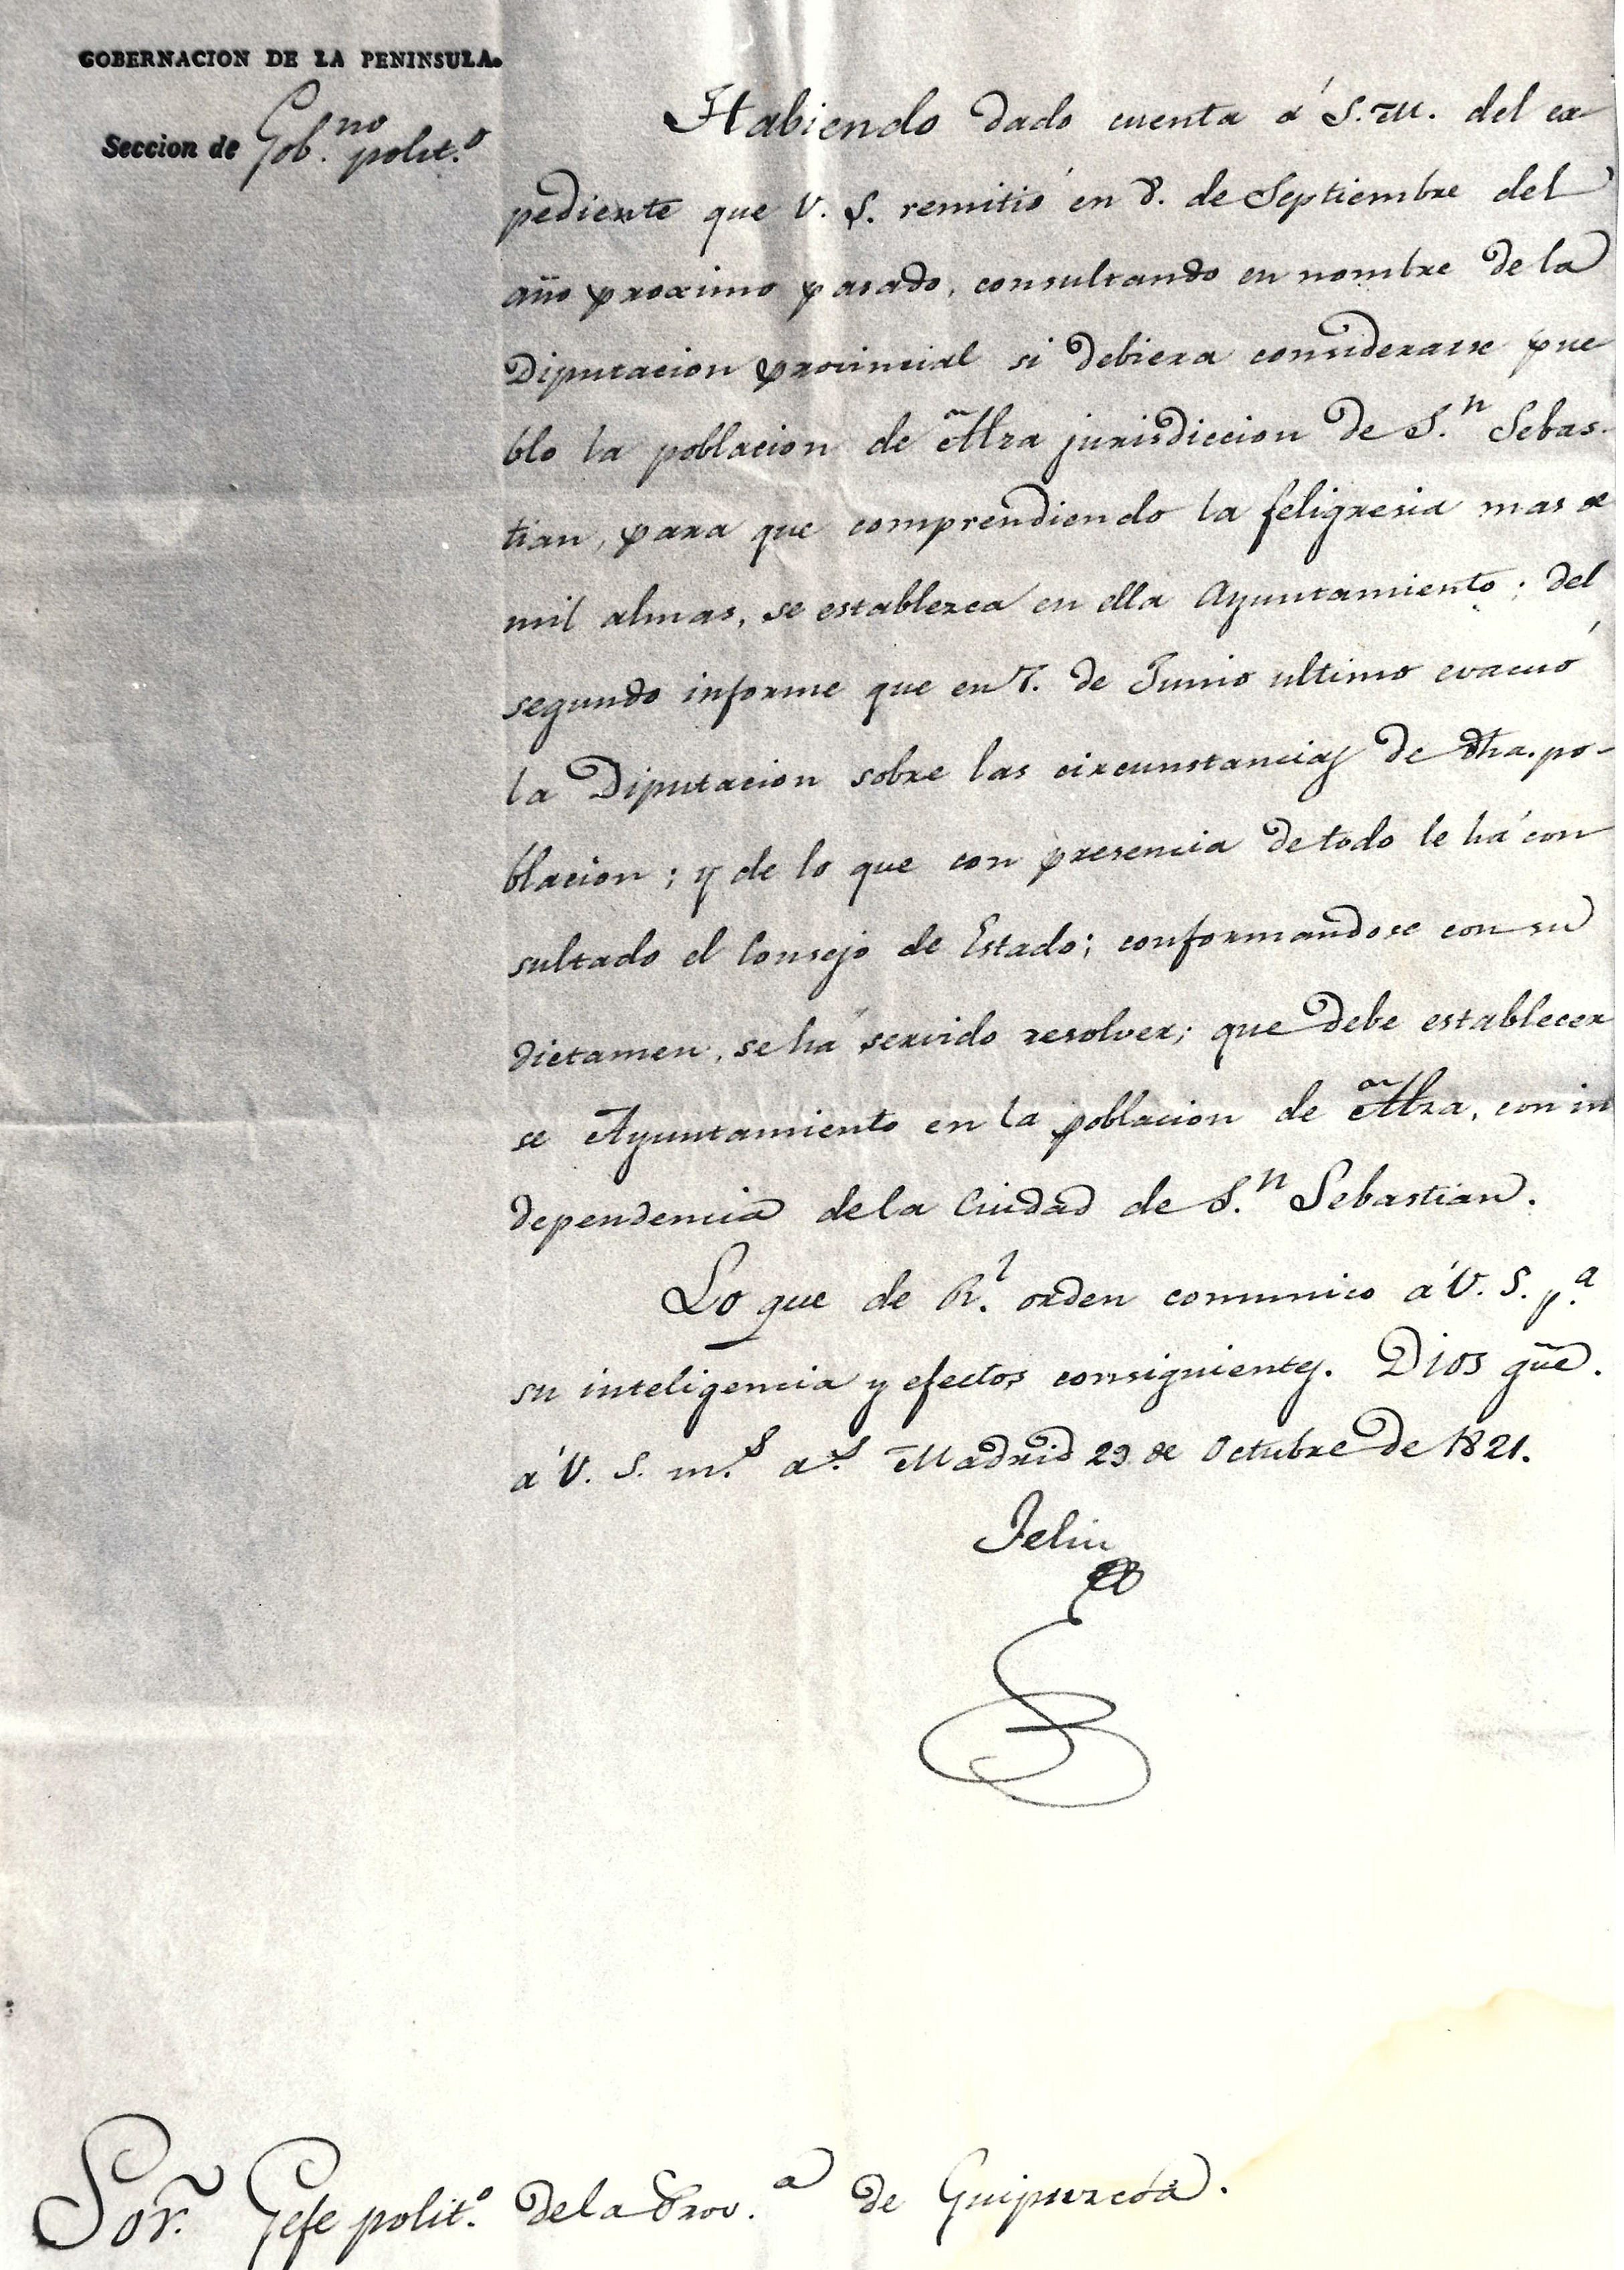 GOBERNACION DE LA PENINSULA.
Seccion de Gob.no polit.o
Habiendo dado cuenta á S. M. del ex-
pediente que V. S. remitió en 8. de Septiembre del
año proximo pasado, consultando en nombre de la
Diputacion provincial si debiera considerarse pue
blo la poblacion de Alza jurisdiccion de S.n Sebas-
tian, para que comprendiendo la feligresia mas de
mil almas, se establezca en ella Ayuntamiento; del
segundo informe que en 7. de Junio ultimo evacuó
la Diputacion sobre las circunstancias de dha. po-
blacion; y de lo que con presencia de todo le há con
sultado el Consejo de Estado; conformandose con su
dictamen, se há servido resolver; que debe establecer
se Ayuntamiento en la poblacion de Alza, con in
dependencia de la Ciudad de S.n Sebastian.
Lo que de R.l orden comunico á V. S. p.a
su inteligencia y efectos consiguientes. Dios gũe.
á V. S. m.s a.s Madrid 29 de Octubre de 1821.
Feliu
Sor. Gefe polit.o de la Prov.a de Guipuzcoa.